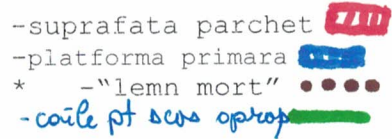 -suprafata parchet
-platforma primara
* -"lemn mort"
-coile pt scos oprop